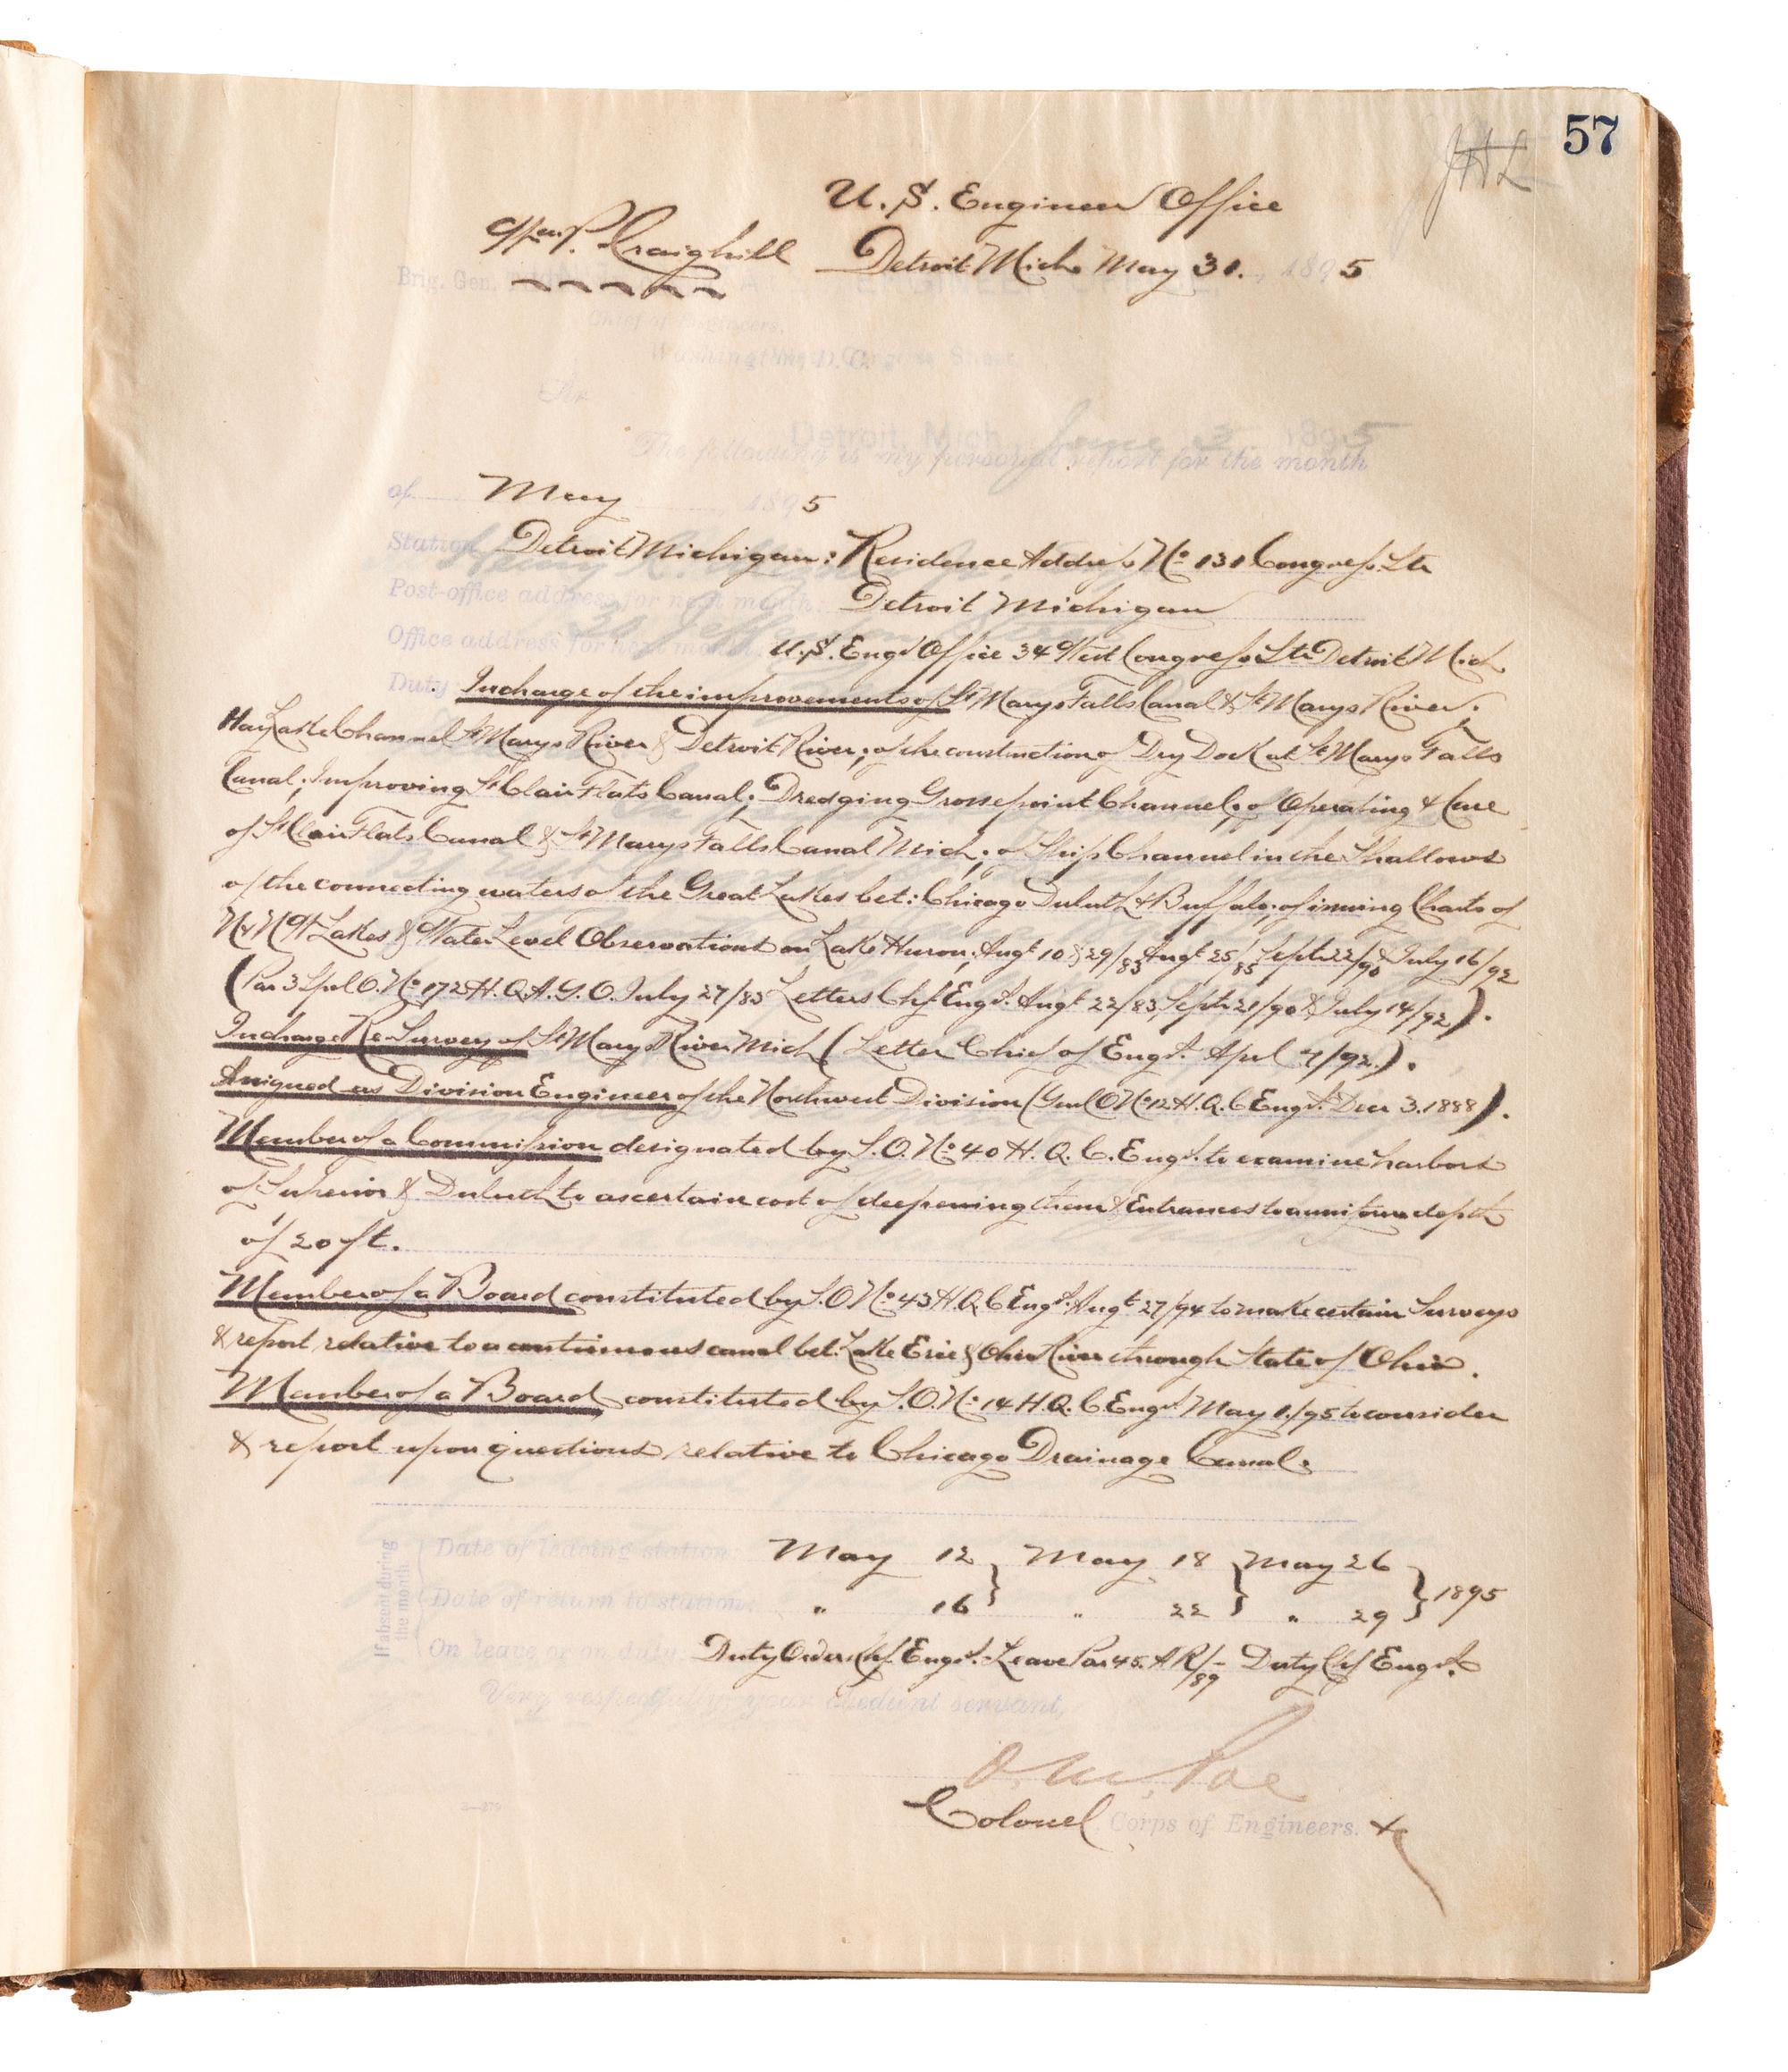 57
JHL
U.S. Engineer Office
Wm. P. Craighill Detroit Mich. May 31. 1895
Brig. Gen.
Chief of Engineers,
Washington, D.C.
Sir
Detroit, Mich. June 3 1895
The following is my personal report for the month
of May, 1895
Station Detroit Michigan: Residence Address No 131 Congress St.
Post-office address for next month: Detroit Michigan
Office address for next month U.S. Engr Office 34 West Congress St. Detroit Mich.
Duty: In charge of the improvements of St Marys Falls Canal & St Marys River;
Hay Lake Channel St Marys River & Detroit River; of the construction of Dry Dock at St Marys Falls
Canal; Improving St Clair Flats Canal; Dredging Grossepoint Channel; of Operating & Care
of St Clair Flats Canal & St Marys Falls Canal Mich; of Ship Channel in the Shallows
of the connecting waters of the Great Lakes bet: Chicago Duluth & Buffalo; of issuing Charts of
N & NW Lakes & Water Level Observations on Lake Huron; Augt 10 & 29/83 Augt 25/85 Septr 22/90 & July 16/92
(Par 3 Spl O. No 172 H.Q.A.G.O. July 27/83 Letters Chf Engrs. Augt 22/83, Septr 21/90 & July 14/92).
In charge Re-Survey of St Marys River Mich (Letter Chief of Engrs. Apl 7/92.).
Assigned as Division Engineer of the Northwest Division (Genl O No 12 H.Q.C Engrs. Decr 3. 1888).
Member of a Commission designated by S.O. No 40 H.Q.C. Engrs. to examine harbors
of Superior & Duluth to ascertain cost of deepening them & Entrances to a uniform depth
of 20 ft.
Member of a Board constituted by S.O No 43 H.Q.C Engrs. Augt 27/94 to make certain Surveys
& report relative to a continuous canal bet. Lake Erie & Ohio River through State of Ohio.
Member of a Board constituted by S.O. No 14 H.Q.C Engrs May 1./95 to consider
& report upon questions relative to Chicago Drainage Canal.
If absent during the month
Date of leaving station: May 12 } May 18 } May 26 } 1895
Date of return to station: " 16 } " 22 } " 29 }
On leave or on duty: Duty Orders Chf. Engrs. Leave Par 45. AR/89 Duty Chf Engrs.
Very respectfully, your obedient servant,
O. M. Poe
Colonel Corps of Engineers.